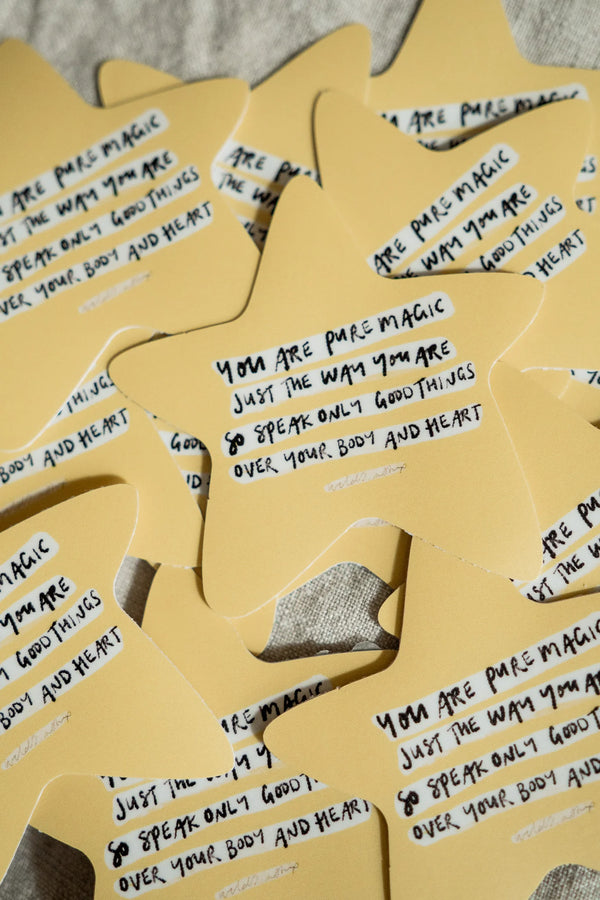 YOU ARE PURE MAGIC
JUST THE WAY YOU ARE
SO SPEAK ONLY GOOD THINGS
OVER YOUR BODY AND HEART
ARE PURE MAGIC
ARE PU
THE WA
ARE PURE MAGIC
ST THE WAY YOU ARE
SPEAK ONLY GOOD THINGS
OVER YOUR BODY AND HEART
ARE PURE MAGIC
THE WAY YOU ARE
GOOD THINGS
AND HEART
THINGS
BODY AND HEART
GOOD
AGIC
YOU ARE
Y GOOD THINGS
BODY AND HEART
ARE PU
ST THE W
YOU ARE PURE MAGIC
JUST THE WAY YOU AR
SO SPEAK ONLY GOOD T
OVER YOUR BODY AND
URE MA
JUST THE WAY Y
SO SPEAK ONLY GOOD TH
OVER YOUR BODY AND HEART